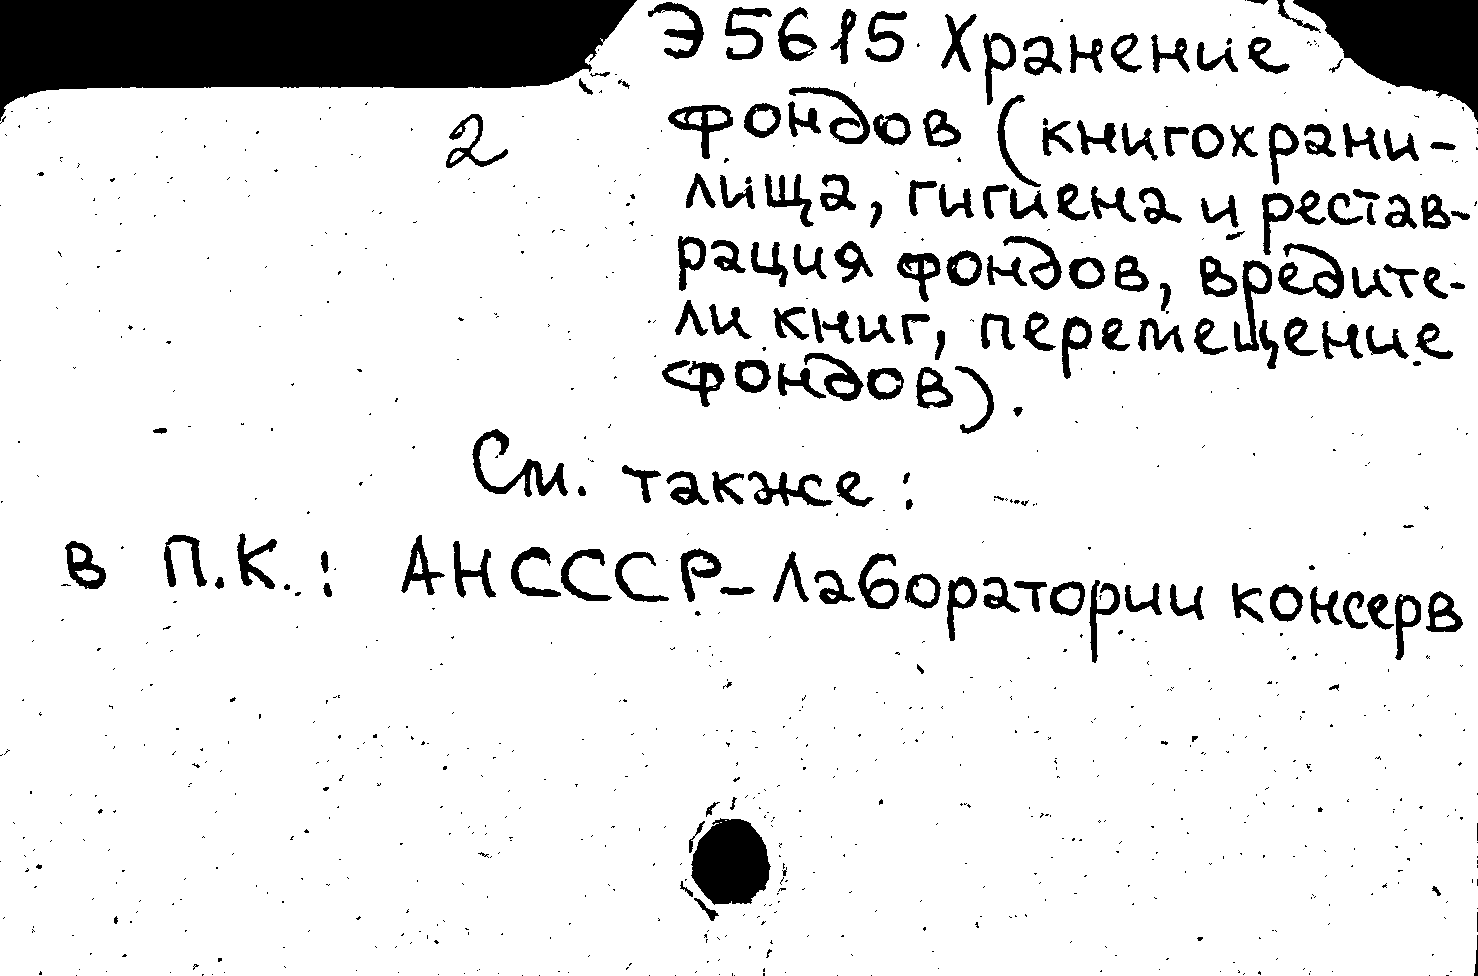 Э5615 Хранение
фондов (книгохрани-
2
лища, гигиена и рестав-
рация фондов, вредите-
ли книг, перемещение
фондов).
См. также:
в П.К.: АНСССР-Лаборатории консерв